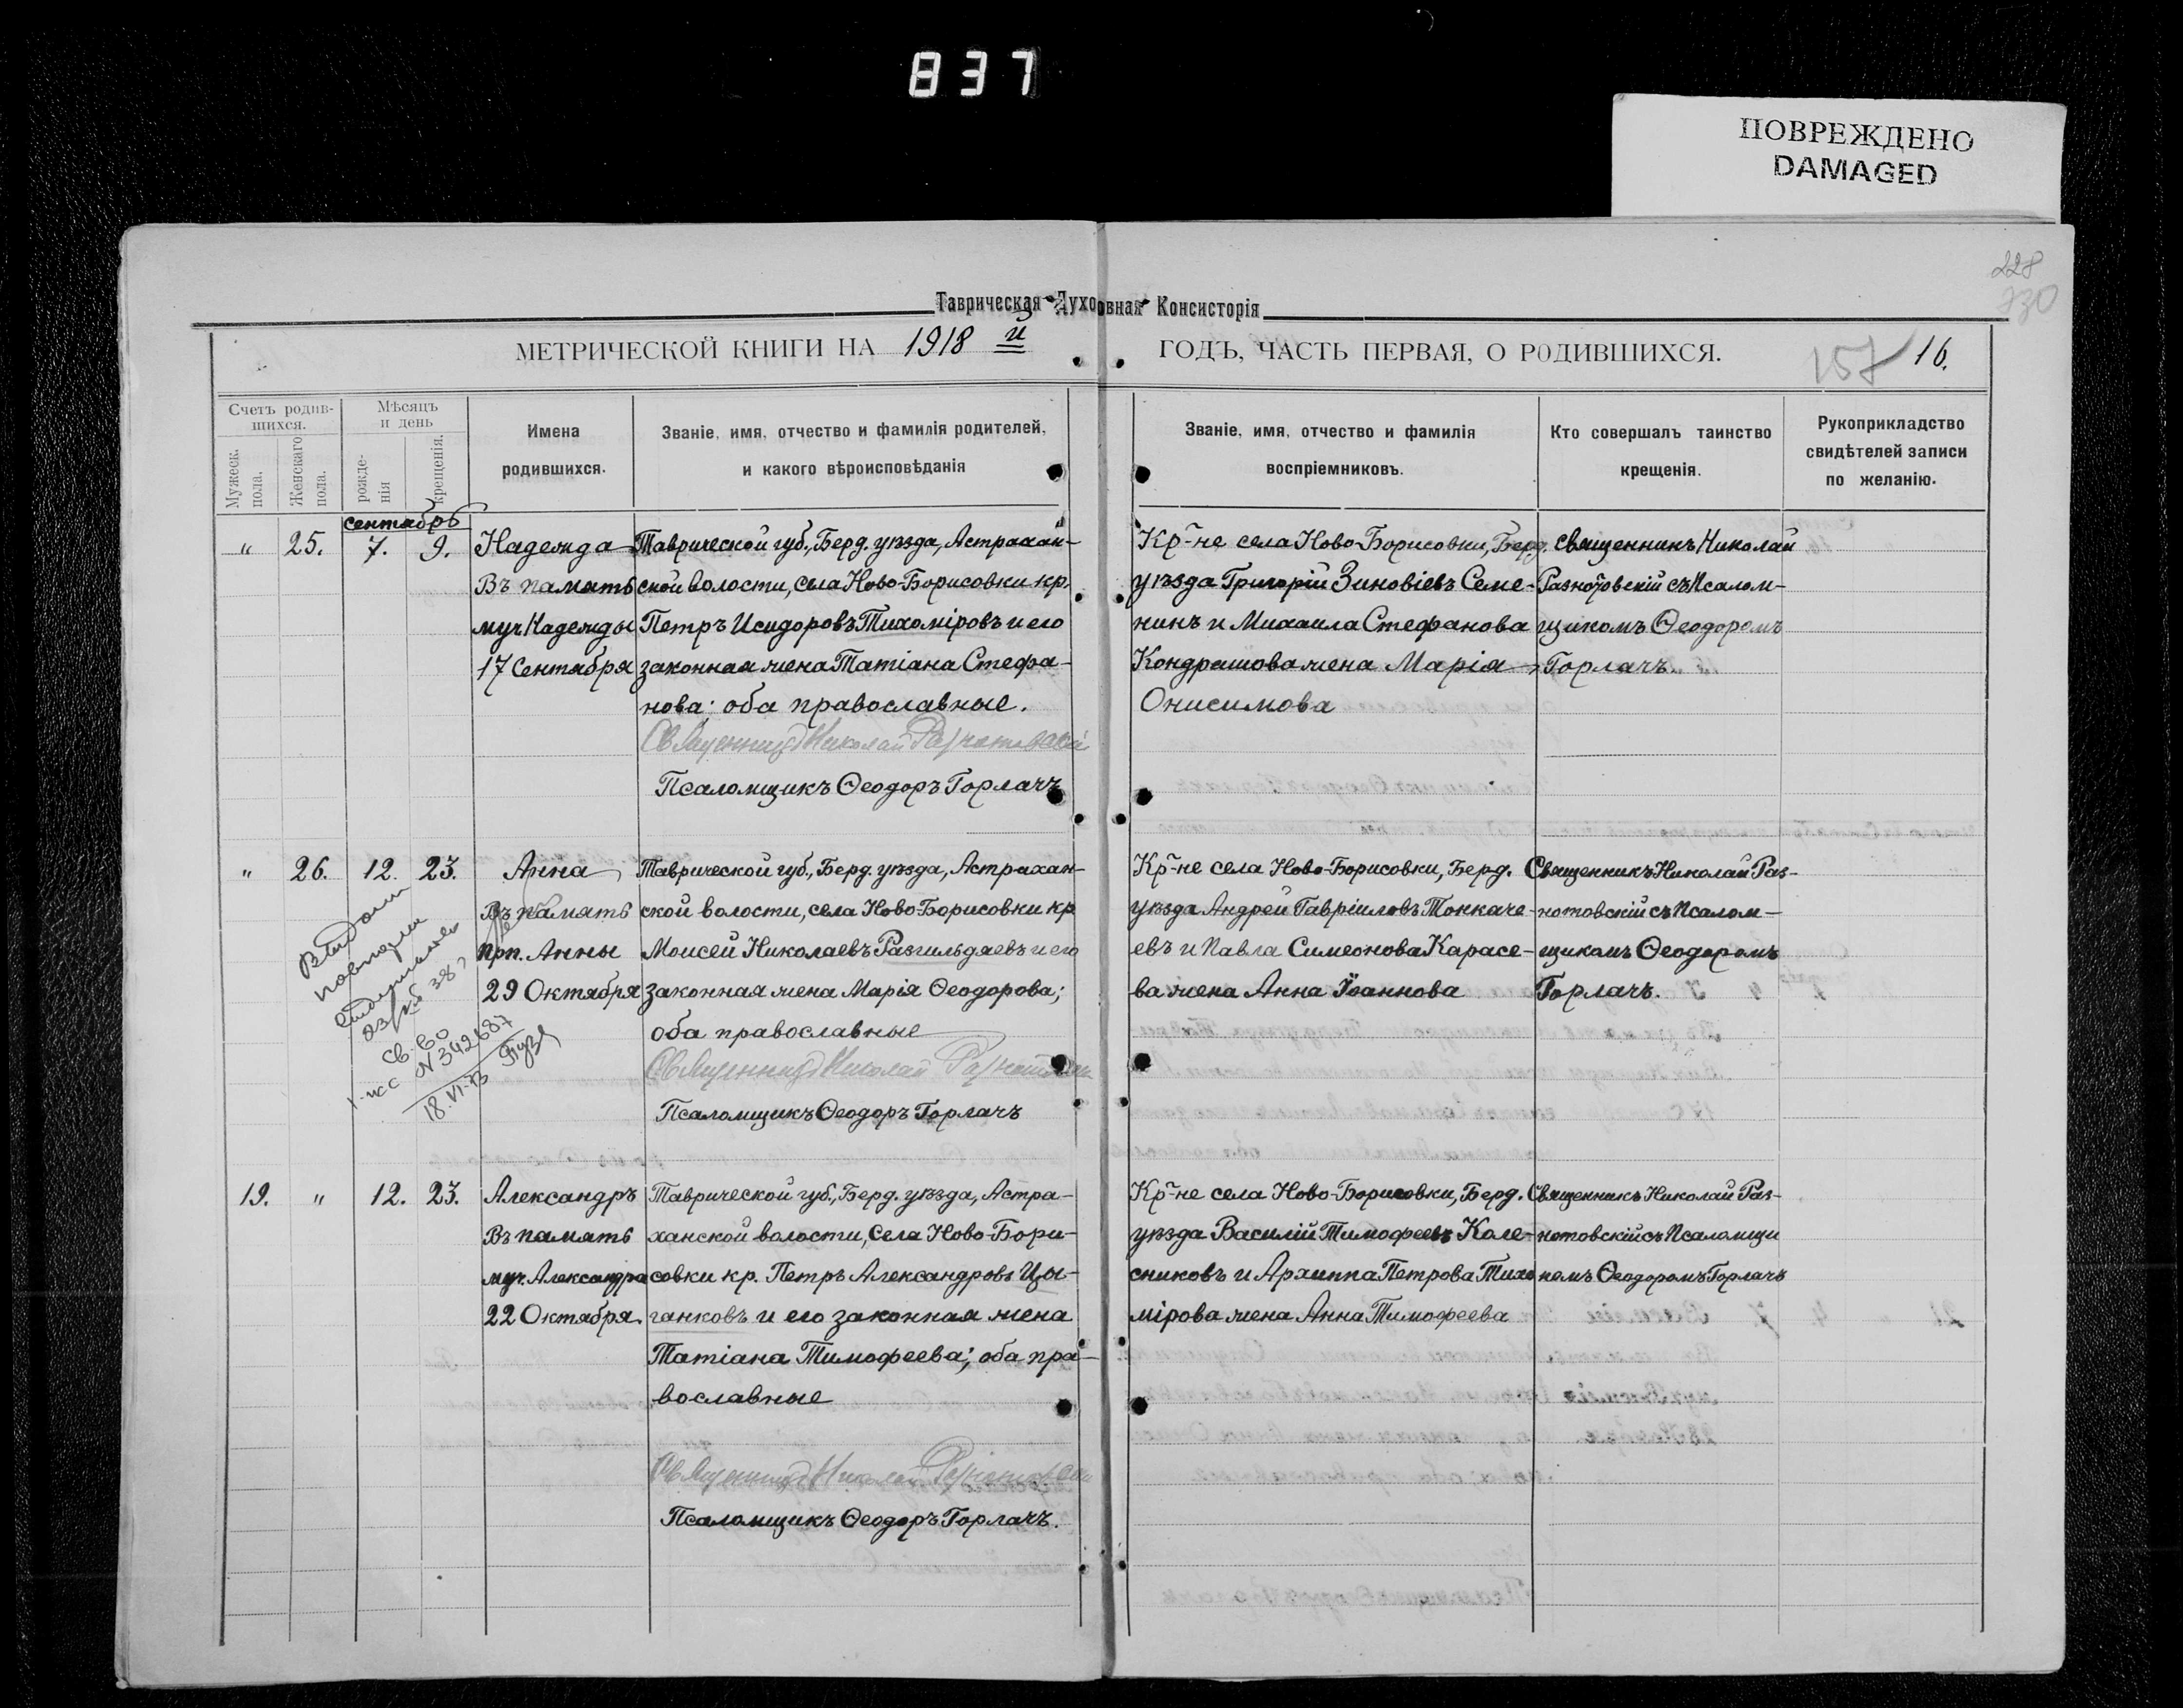 837
ПОВРЕЖДЕНО
DAMAGED
228
730
Таврическая Духовная Консисторія
МЕТРИЧЕСКОЙ КНИГИ НА 1918 й ГОДЪ, ЧАСТЬ ПЕРВАЯ, О РОДИВШИХСЯ.
157 16.
Счетъ родив-
шихся.
Мужеск. пола.
Женскаго пола.
Мѣсяцъ
и день
рожде-
нія
крещенія.
Имена
родившихся.
Званіе, имя, отчество и фамилія родителей,
и какого вѣроисповѣданія
Званіе, имя, отчество и фамилія
воспріемниковъ.
Кто совершалъ таинство
крещенія.
Рукоприкладство
свидѣтелей записи
по желанію.
сентябрь
" 25. 7. 9.
Надежда
Въ память
муч Надежды
17 Сентября
Таврической губ., Берд. уѣзда, Астрахан-
ской волости, села Ново-Борисовки кр.
Петръ Исидоровъ Тихоміровъ и его
законная жена Татіана Стефа-
нова; оба православные.
Священникъ Николай Разнотовскій
Псаломщикъ Ѳеодоръ Горлачъ
Кр-не села Ново-Борисовки, Берд.
уѣзда Григорій Зиновіевъ Семе-
нинъ и Михаила Стефанова
Кондрашова жена Марія
Онисимова
Священникъ Николай
Разнотовскій съ Псалом-
щикомъ Ѳеодоромъ
Горлачъ.
" 26. 12. 23.
Анна
Въ память
прп. Анны
29 Октября
Таврической губ., Берд. уѣзда, Астрахан-
ской волости, села Ново-Борисовки кр
Моисей Николаевъ Разгильдяевъ и его
законная жена Марія Ѳеодорова;
оба православные
Священникъ Николай Разнотовскій
Псаломщикъ Ѳеодоръ Горлачъ
Кр-не села Ново-Борисовки, Берд.
уѣзда Андрей Гавріиловъ Токкаче-
евъ и Павла Симеонова Карасе-
ва жена Анна Іоаннова
Священникъ Николай Раз-
нотовскій съ Псалом-
щикомъ Ѳеодоромъ
Горлачъ.
Выдали
повторн
св-во
N 342687
18.VI-73
19. " 12. 23.
Александръ
Въ память
муч. Александра
22 Октября.
Таврической губ., Берд. уѣзда, Астра-
ханской волости, Села Ново-Бори-
совки кр. Петръ Александровъ Цы-
ганковъ и его законная жена
Татіана Тимофеева; оба пра-
вославные
Священникъ Николай Разнотовскій
Псаломщикъ Ѳеодоръ Горлачъ.
Кр-не села Ново-Борисовки, Берд.
уѣзда Василій Тимофеевъ Коле-
сниковъ и Архиппа Петрова Тихо
мірова жена Анна Тимофеева
Священникъ Николай Раз-
нотовскій съ Псаломщи
комъ Ѳеодоромъ Горлачъ